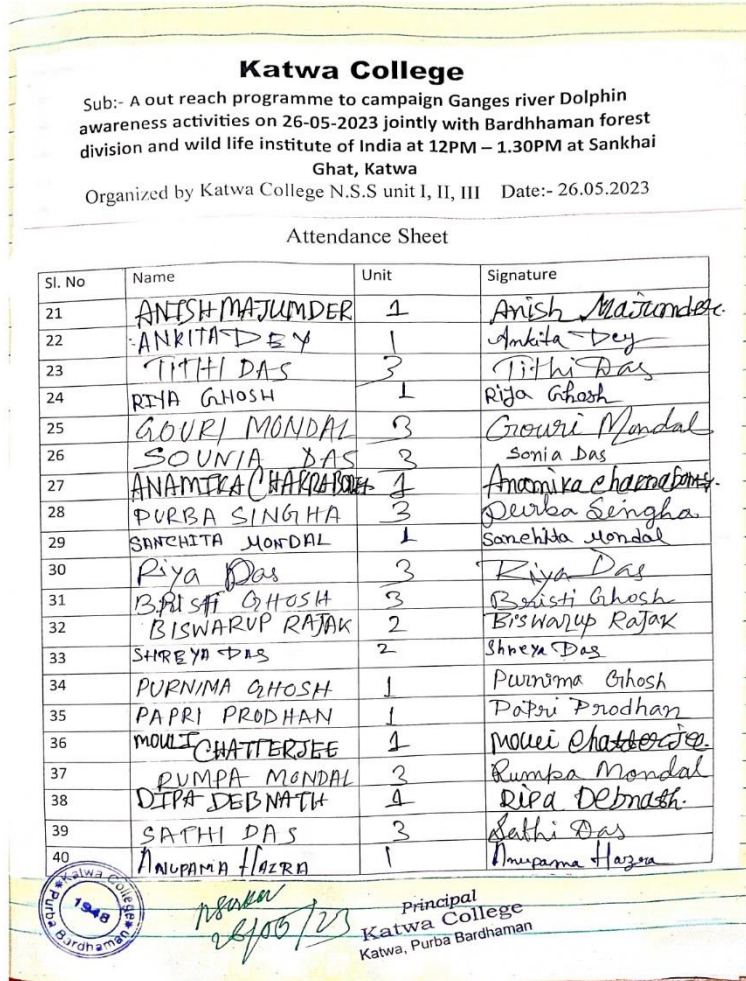 Katwa College
Sub:- A out reach programme to campaign Ganges river Dolphin
awareness activities on 26-05-2023 jointly with Bardhhaman forest
division and wild life institute of India at 12PM – 1.30PM at Sankhai
Ghat, Katwa
Organized by Katwa College N.S.S unit I, II, III Date:- 26.05.2023
Attendance Sheet
Sl. No Name Unit Signature
21 ANISH MAJUMDER 1 Anish Majumder.
22 ANKITA DEY 1 Ankita Dey
23 TITHI DAS 3 Tithi Das
24 RIYA GHOSH 1 Riya Ghosh
25 GOURI MONDAL 3 Gouri Mondal
26 SOUNIA DAS 3 Sonia Das
27 ANAMIKA 1 Anamika
28 PURBA SINGHA 3 Purba Singha
29 SANCHITA MONDAL 1 Sanchita Mondal
30 Riya Das 3 Riya Das
31 BRISTI GHOSH 3 Bristi Ghosh
32 BISWARUP RAJAK 2 Biswarup Rajak
33 SHREYA DAS 2 Shreya Das
34 PURNIMA GHOSH 1 Purnima Ghosh
35 PAPRI PRODHAN 1 Papri Prodhan
36 MOULI CHATTERJEE 1 Mouli Chatterjee.
37 RUMPA MONDAL 3 Rumpa Mondal
38 DIPA DEBNATH 1 Dipa Debnath.
39 SATHI DAS 3 Sathi Das
40 ANUPAMA HAZRA 1 Anupama Hazra
Katwa College
Purba Bardhaman
1948
26/05/23
Principal
Katwa College
Katwa, Purba Bardhaman